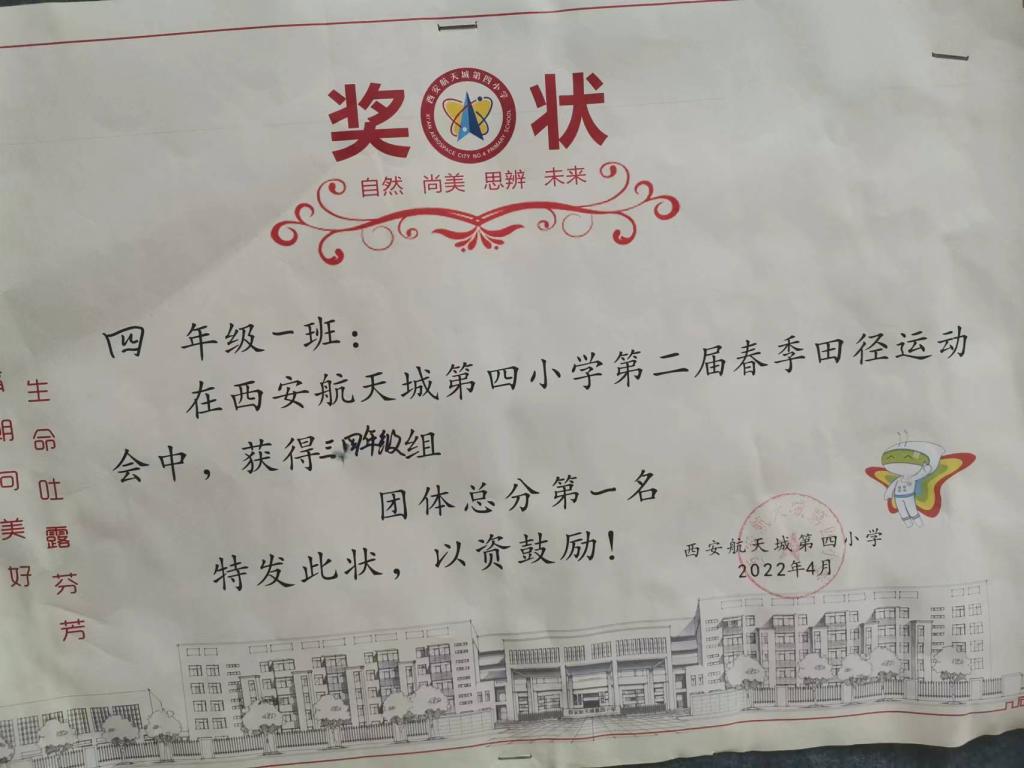 奖 状
西安航天城第四小学
XI'AN AEROSPACE CITY NO.4 PRIMARY SCHOOL
自然 尚美 思辨 未来
四 年级一班：
在西安航天城第四小学第二届春季田径运动
会中，获得三四年级组
团体总分第一名
特发此状，以资鼓励！
西安航天城第四小学
2022年4月
生命吐露芬芳
明可美好